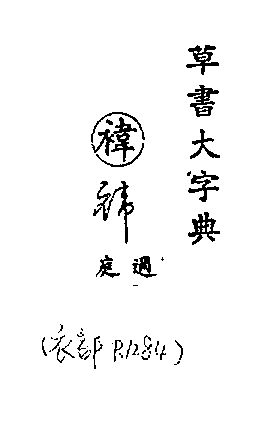 草書大字典
褘
過庭
(衣部 P.1284)